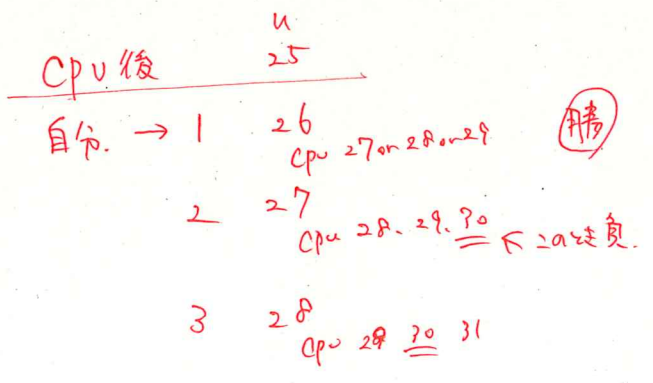 u
CPU後 25
自分. → 1 26 勝
CPU 27 or 28 or 29
2 27
CPU 28、29、30 ← このとき負.
3 28
CPU 29 30 31